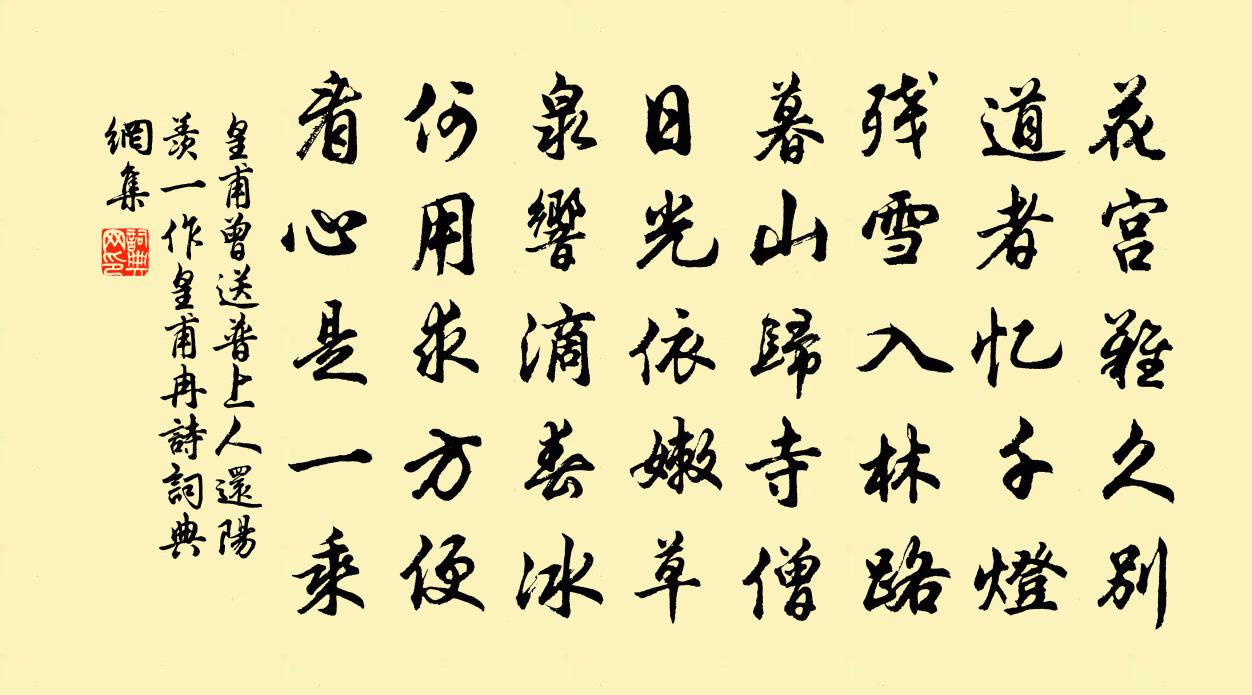 花宫難久别
道者忆千燈
残雪入林路
暮山歸寺僧
日光依嫩草
泉響滴春冰
何用求方便
看心是一乘
皇甫曾送普上人還陽
羨一作皇甫冉詩詞典
網集
詞典
网印